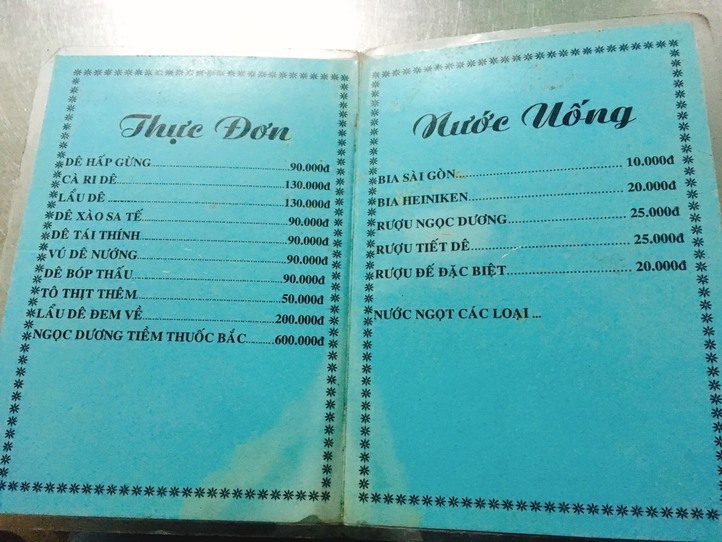 Thực Đơn
DÊ HẤP GỪNG..............................90.000đ
CÀ RI DÊ..............................130.000đ
LẨU DÊ..............................130.000đ
DÊ XÀO SA TẾ..............................90.000đ
DÊ TÁI THÍNH..............................90.000đ
VÚ DÊ NƯỚNG..............................90.000đ
DÊ BÓP THẤU..............................90.000đ
TÔ THỊT THÊM..............................50.000đ
LẨU DÊ ĐEM VỀ..............................200.000đ
NGỌC DƯƠNG TIỀM THUỐC BẮC..........600.000đ
Nước Uống
BIA SÀI GÒN..............................10.000đ
BIA HEINIKEN..............................20.000đ
RƯỢU NGỌC DƯƠNG..............................25.000đ
RƯỢU TIẾT DÊ..............................25.000đ
RƯỢU ĐẾ ĐẶC BIỆT..............................20.000đ
NƯỚC NGỌT CÁC LOẠI ...